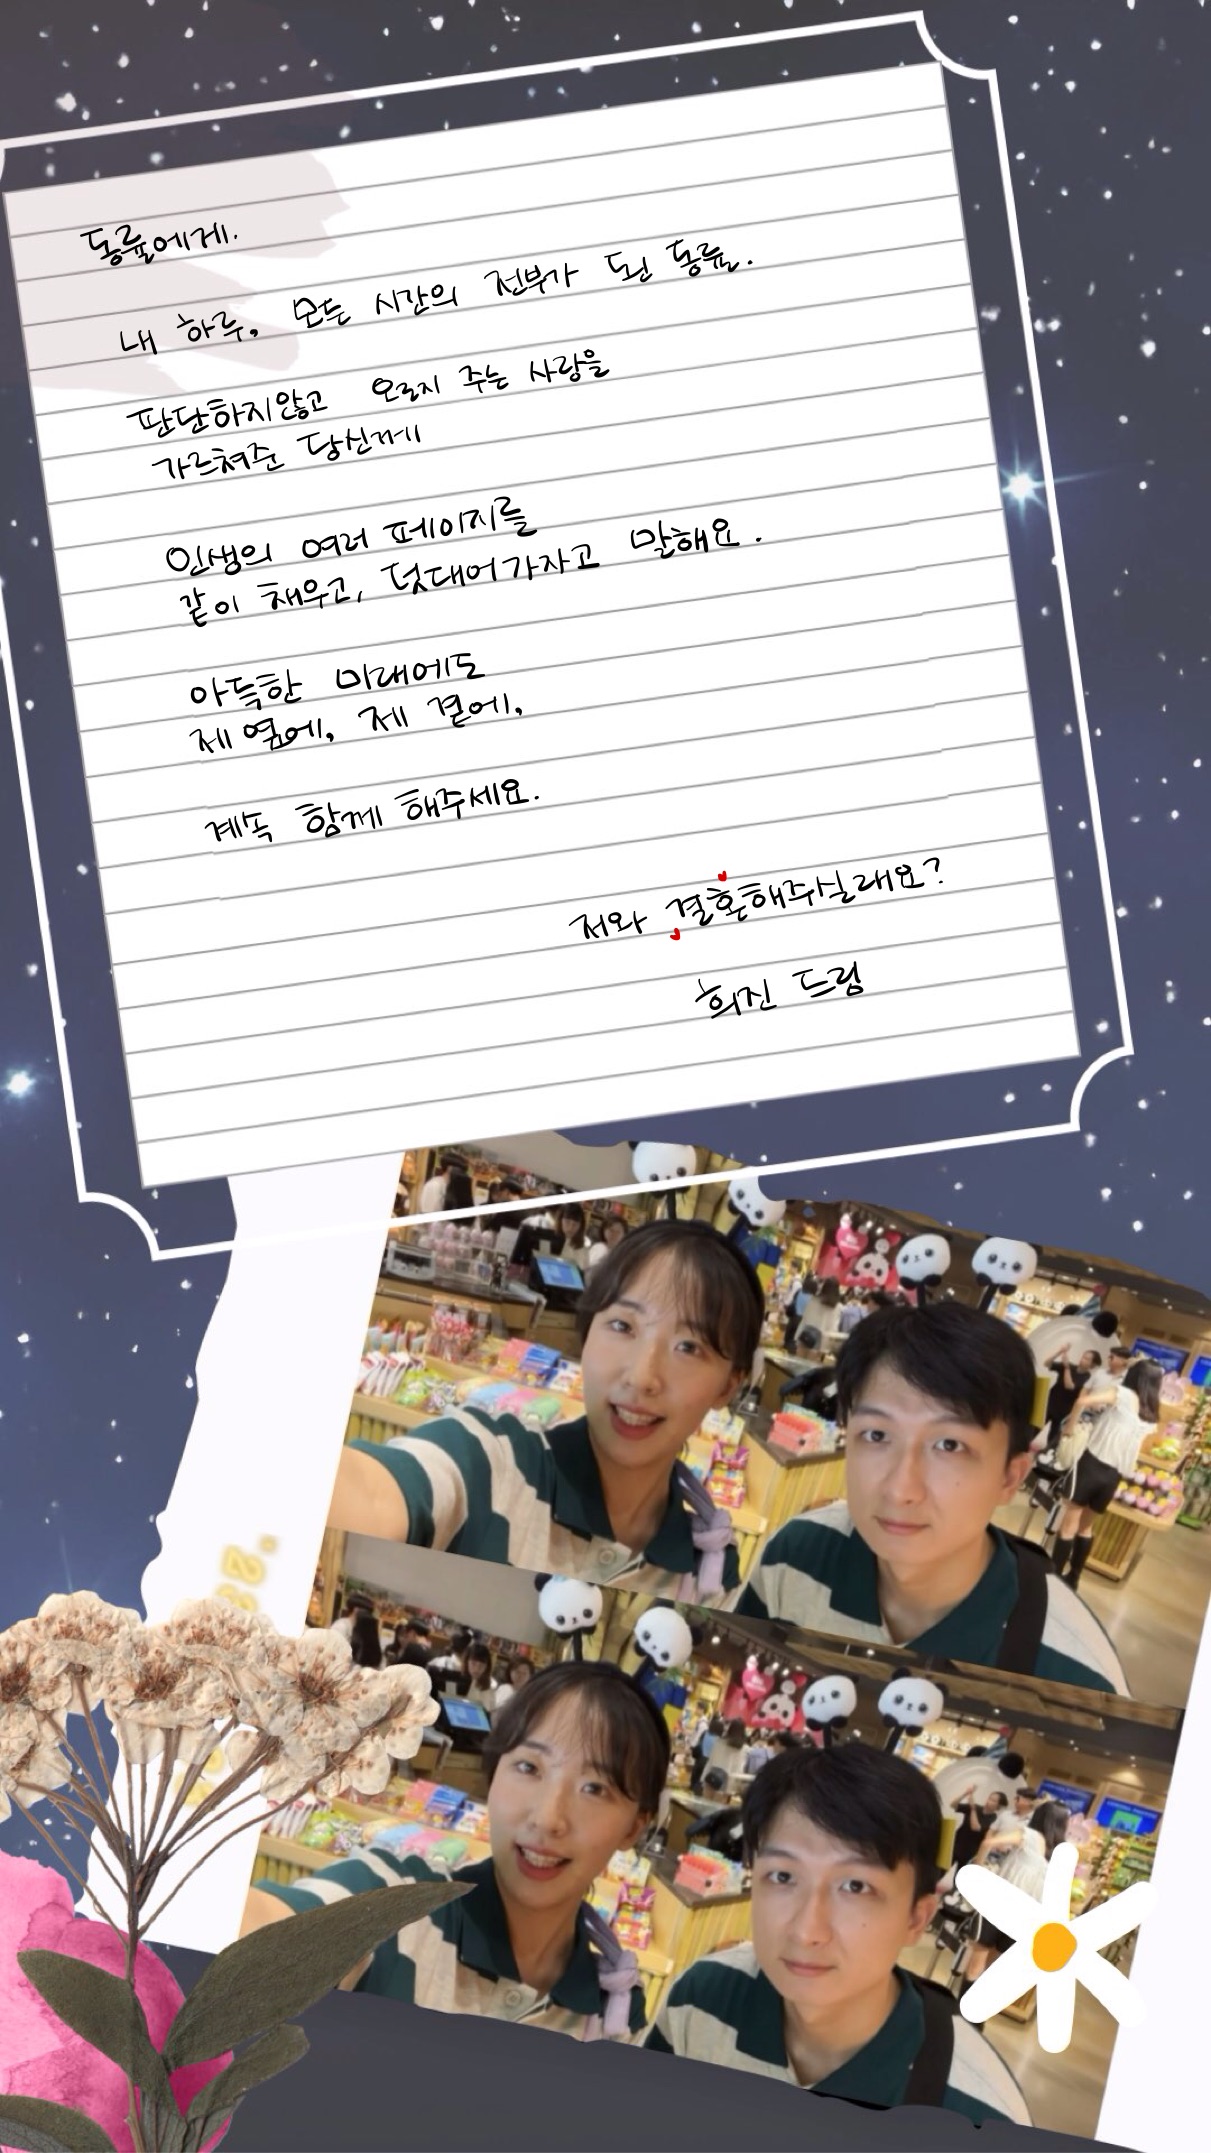 동률에게.
내 하루, 모든 시간의 전부가 된 동률.
판단하지않고 오로지 주는 사랑을
가르쳐준 당신께
인생의 여러 페이지를
같이 채우고, 덧대어가자고 말해요.
아득한 미래에도
제 옆에, 제 곁에,
계속 함께 해주세요.
저와 결혼해주실래요?
희진 드림